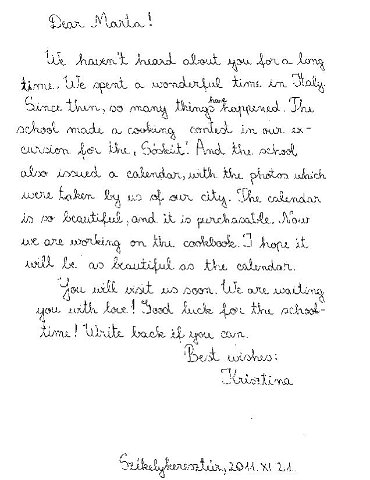 Dear Marta!
We haven't heard about you for a long
time. We spent a wonderful time in Italy.
Since then, so many things have happened. The
school made a cooking contest in our ex-
cursion for the "Sóskút". And the school
also issued a calendar, with the photos which
were taken by us of our city. The calendar
is so beautiful, and it is purchasable. Now
we are working on the cookbook. I hope it
will be as beautiful as the calendar.
You will visit us soon. We are waiting
you with love! Good luck for the school-
time! Write back if you can.
Best wishes:
Krisztina
Székelykeresztúr, 2011. XI. 21.